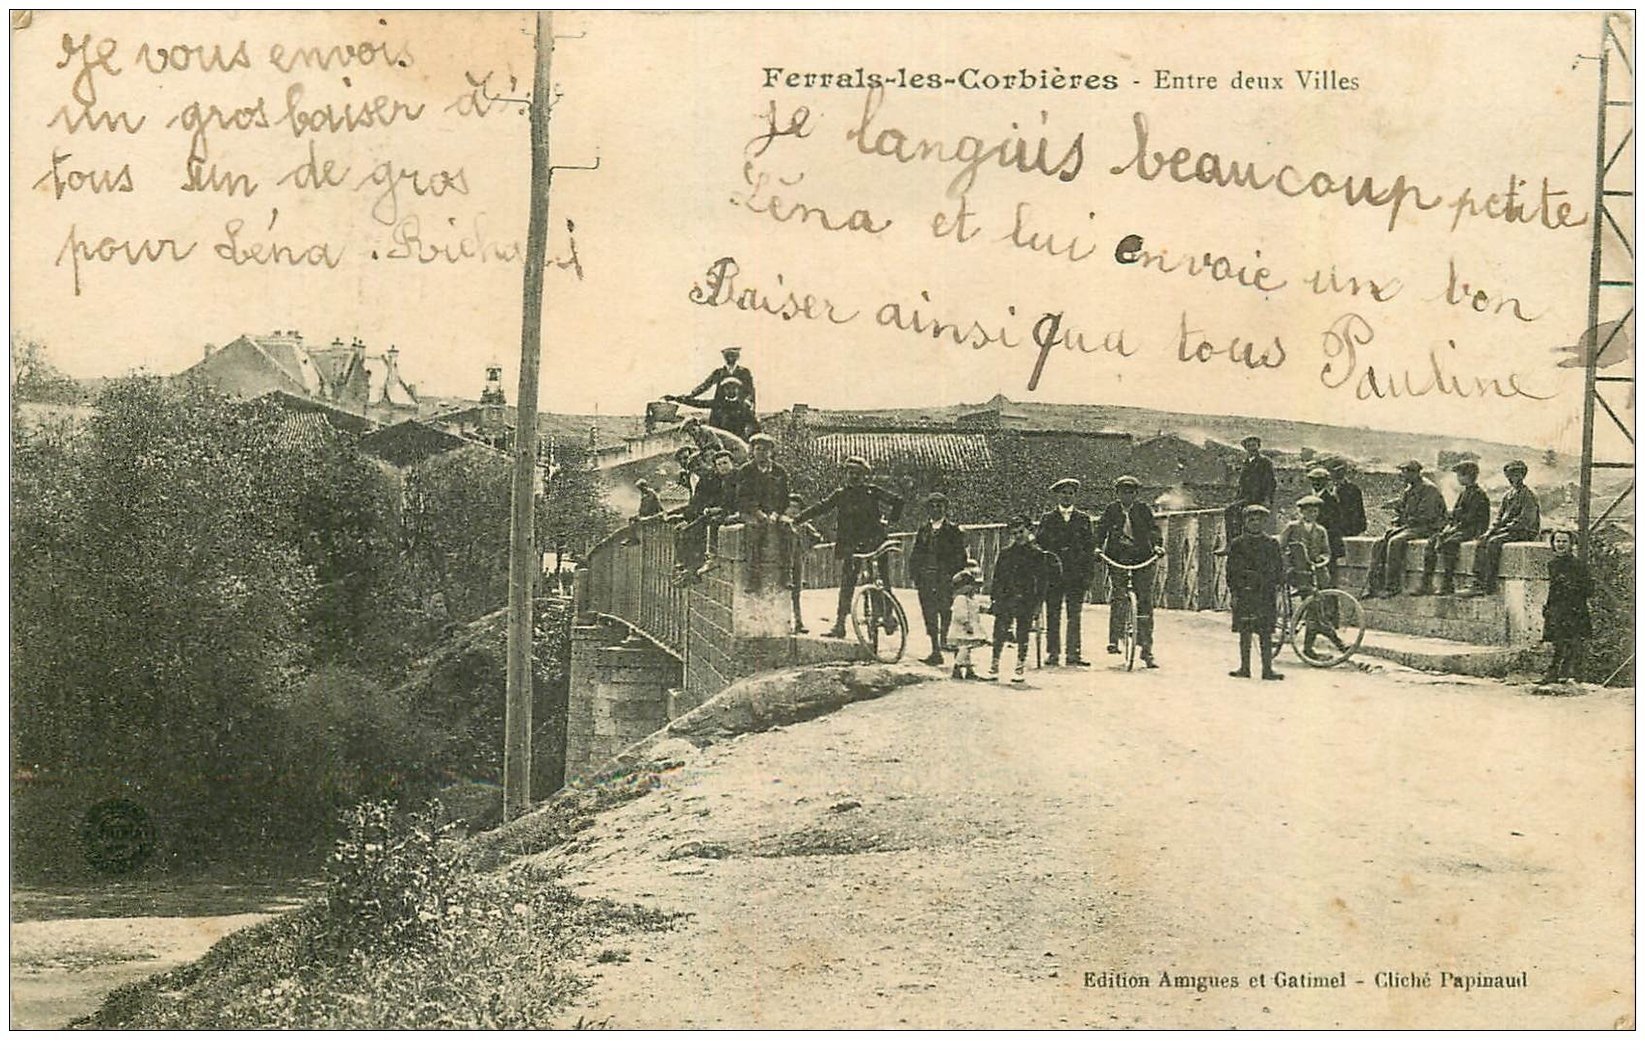 Ferrals-les-Corbières - Entre deux Villes
Je vous envois
un gros baiser à
tous un de gros
pour Léna. Richard
Je languis beaucoup petite
Léna et lui envoie un bon
Baiser ainsi qua tous Pauline
Edition Amigues et Gatimel - Cliché Papinaud